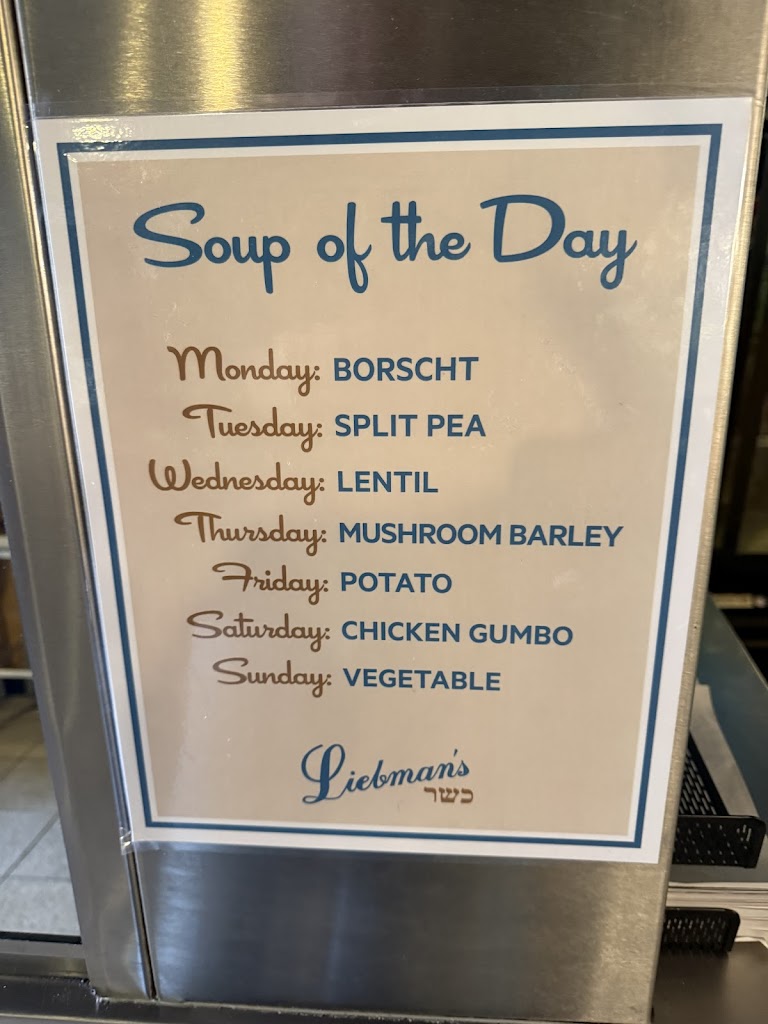 Soup of the Day
Monday: BORSCHT
Tuesday: SPLIT PEA
Wednesday: LENTIL
Thursday: MUSHROOM BARLEY
Friday: POTATO
Saturday: CHICKEN GUMBO
Sunday: VEGETABLE
Liebman's
כשר